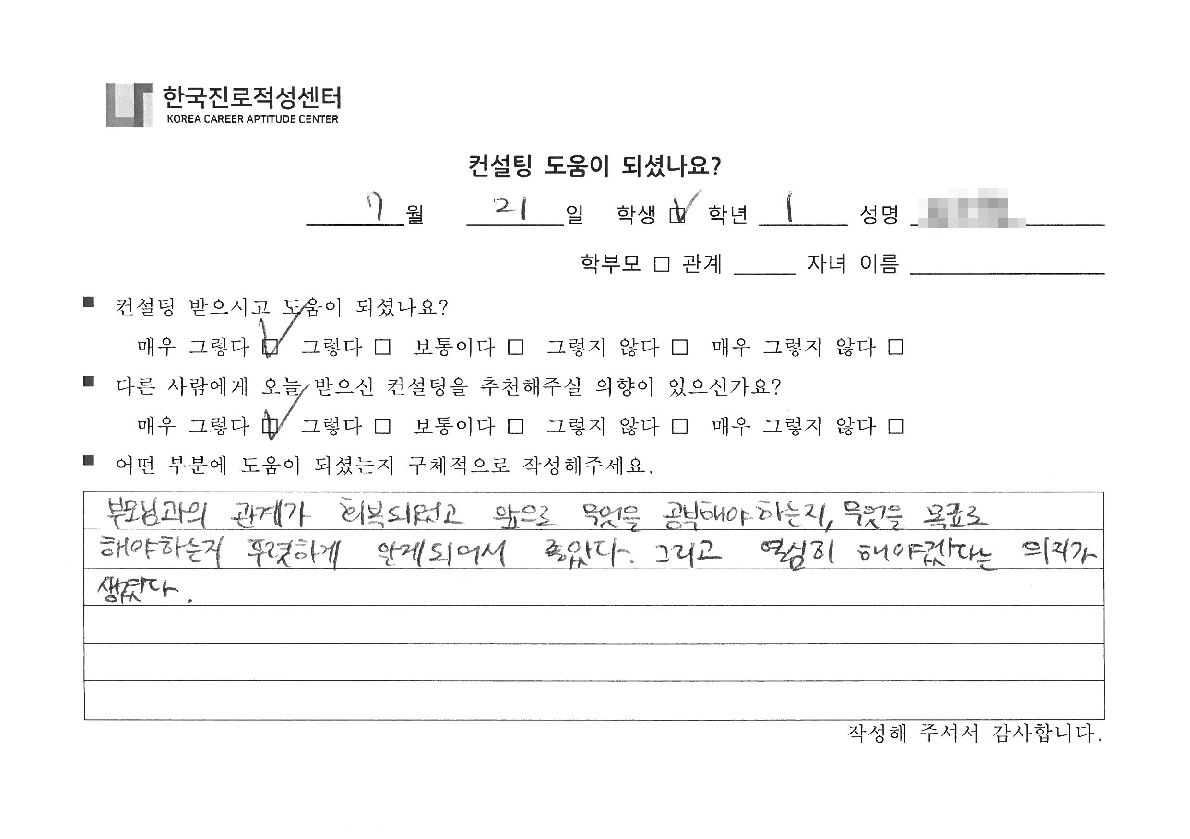 한국진로적성센터
KOREA CAREER APTITUDE CENTER
컨설팅 도움이 되셨나요?
7 월 21 일 학생 ☑ 학년 1 성명
학부모 □ 관계 자녀 이름
■ 컨설팅 받으시고 도움이 되셨나요?
매우 그렇다 ☑ 그렇다 □ 보통이다 □ 그렇지 않다 □ 매우 그렇지 않다 □
■ 다른 사람에게 오늘 받으신 컨설팅을 추천해주실 의향이 있으신가요?
매우 그렇다 ☑ 그렇다 □ 보통이다 □ 그렇지 않다 □ 매우 그렇지 않다 □
■ 어떤 부분에 도움이 되셨는지 구체적으로 작성해주세요.
부모님과의 관계가 회복되었고 앞으로 무엇을 공부해야하는지, 무엇을 목표로
해야하는지 뚜렷하게 알게되어서 좋았다. 그리고 열심히 해야겠다는 의지가
생겼다.
작성해 주셔서 감사합니다.